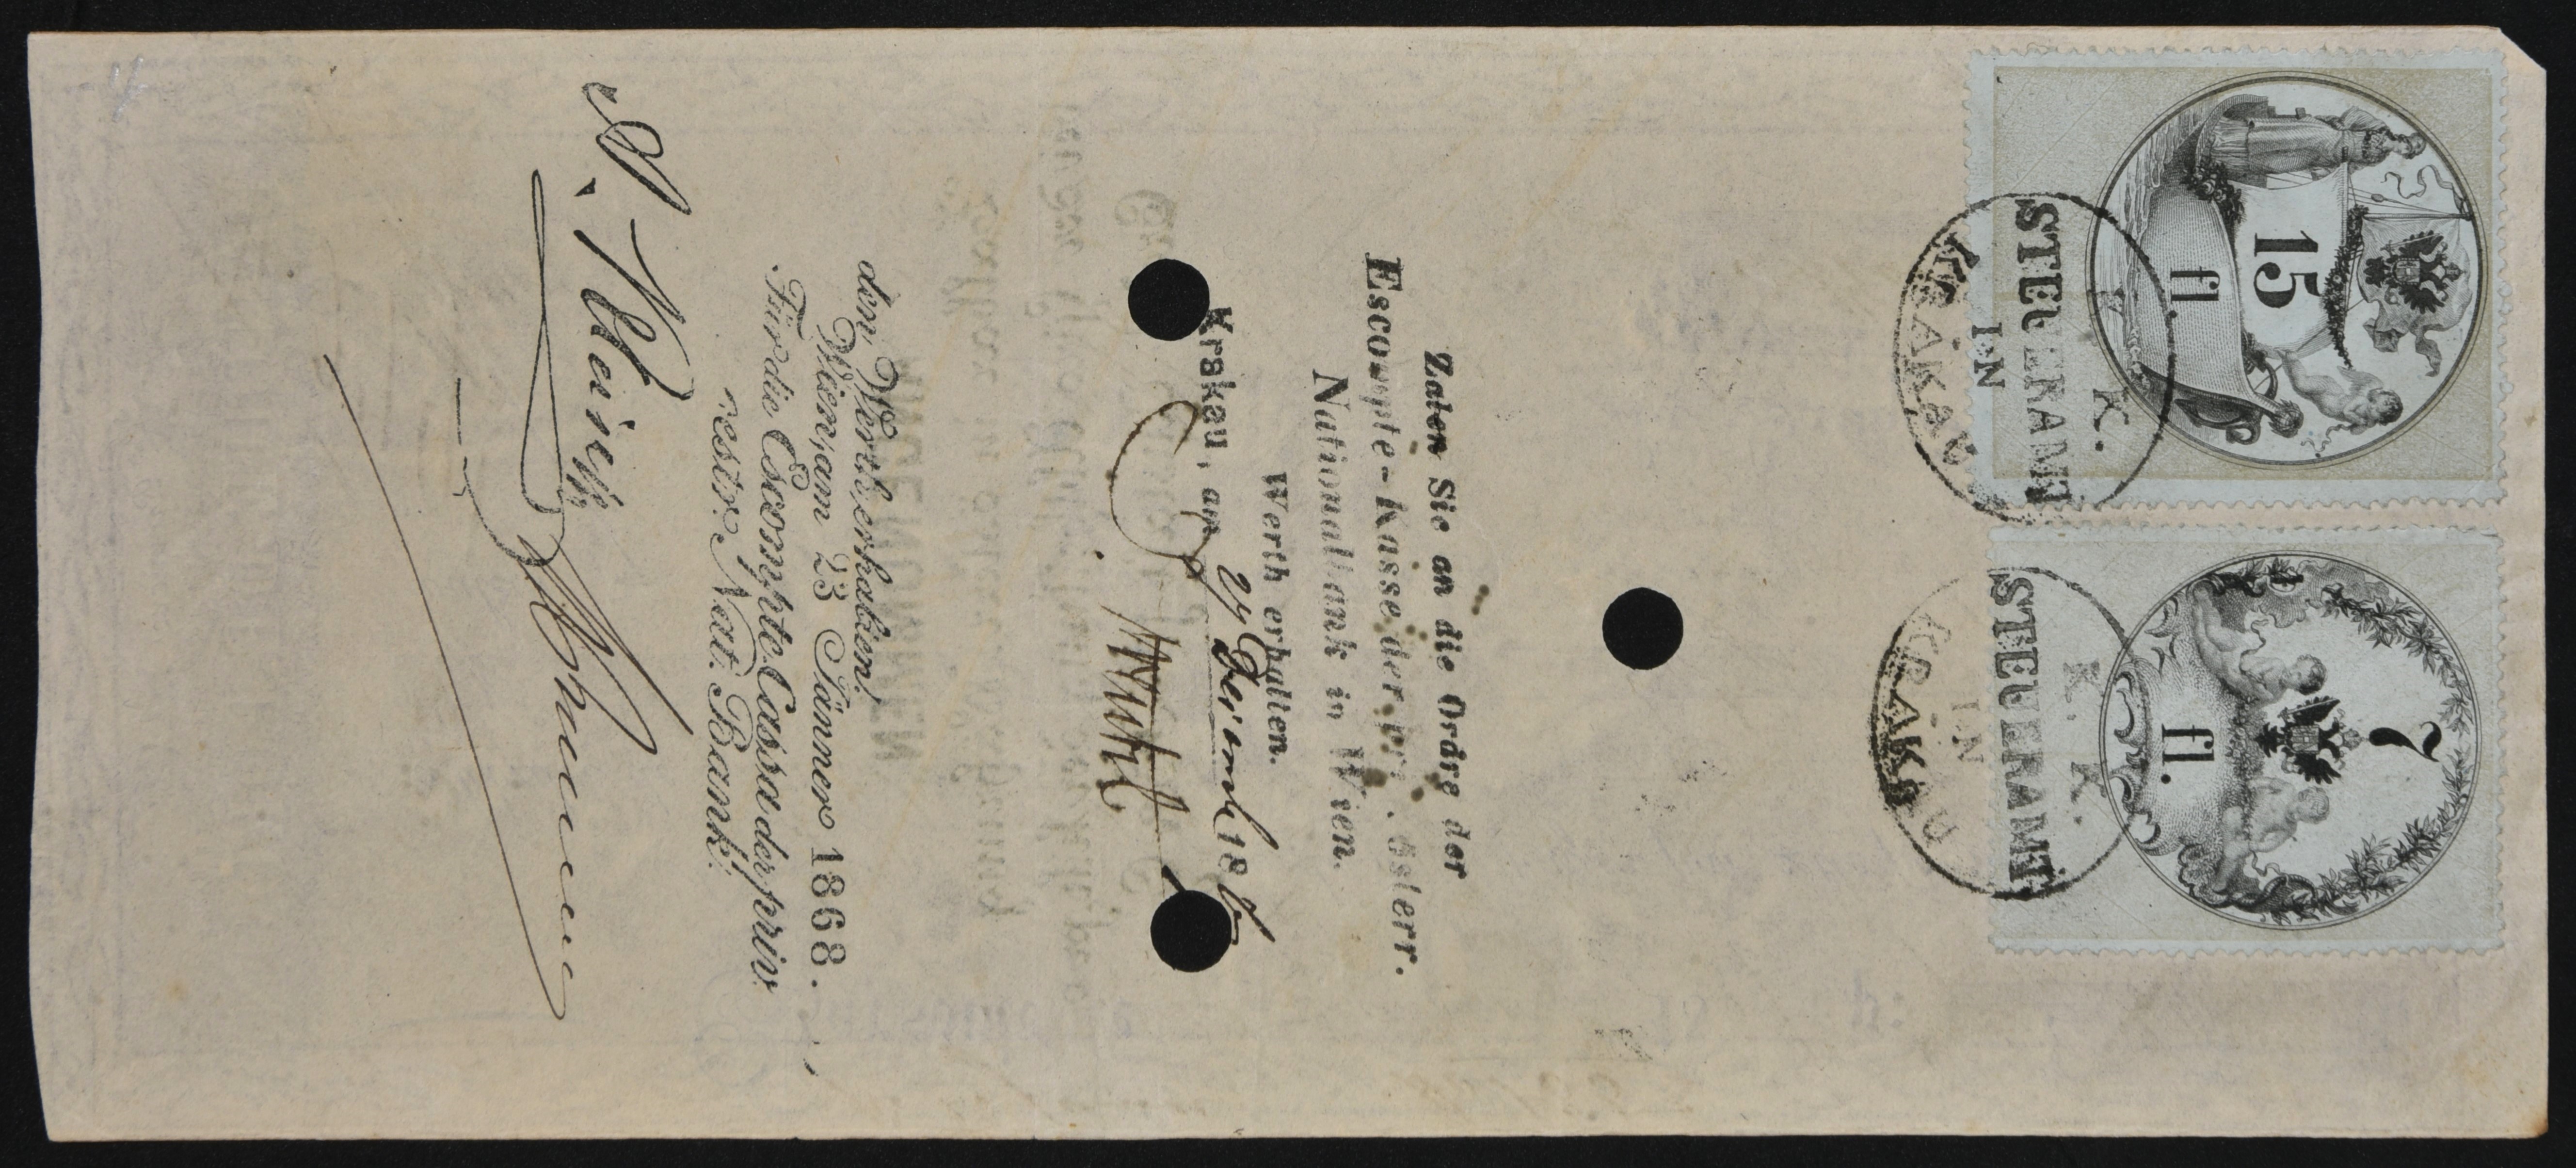 15
fl.
7
fl.
K. K.
STEUERAMT
IN
KRAKAU
K. K.
STEUERAMT
IN
KRAKAU
Zalen Sie an die Ordre der
Escompte-Kasse der priv. österr.
Nationalbank in Wien.
Werth erhalten.
Krakau, am 27 186
den Werth erhalten!
Wien, am 23 Jänner 1868.
Für die Escompte Cassa der priv.
oestr. Nat. Bank: